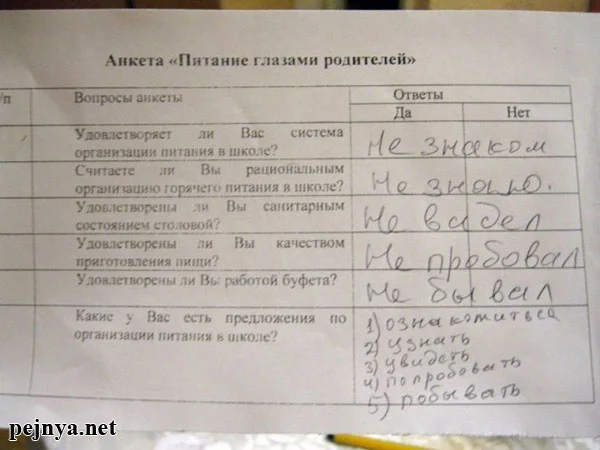 Анкета «Питание глазами родителей»
/п Вопросы анкеты Ответы
Да Нет
Удовлетворяет ли Вас система
организации питания в школе?
Не знаком
Считаете ли Вы рациональным
организацию горячего питания в школе?
Не знаю.
Удовлетворены ли Вы санитарным
состоянием столовой?
Не видел
Удовлетворены ли Вы качеством
приготовления пищи?
Не пробовал
Удовлетворены ли Вы работой буфета?
Не бывал
Какие у Вас есть предложения по
организации питания в школе?
1) ознакомиться
2) узнать
3) увидеть
4) попробовать
5) побывать
pejnya.net